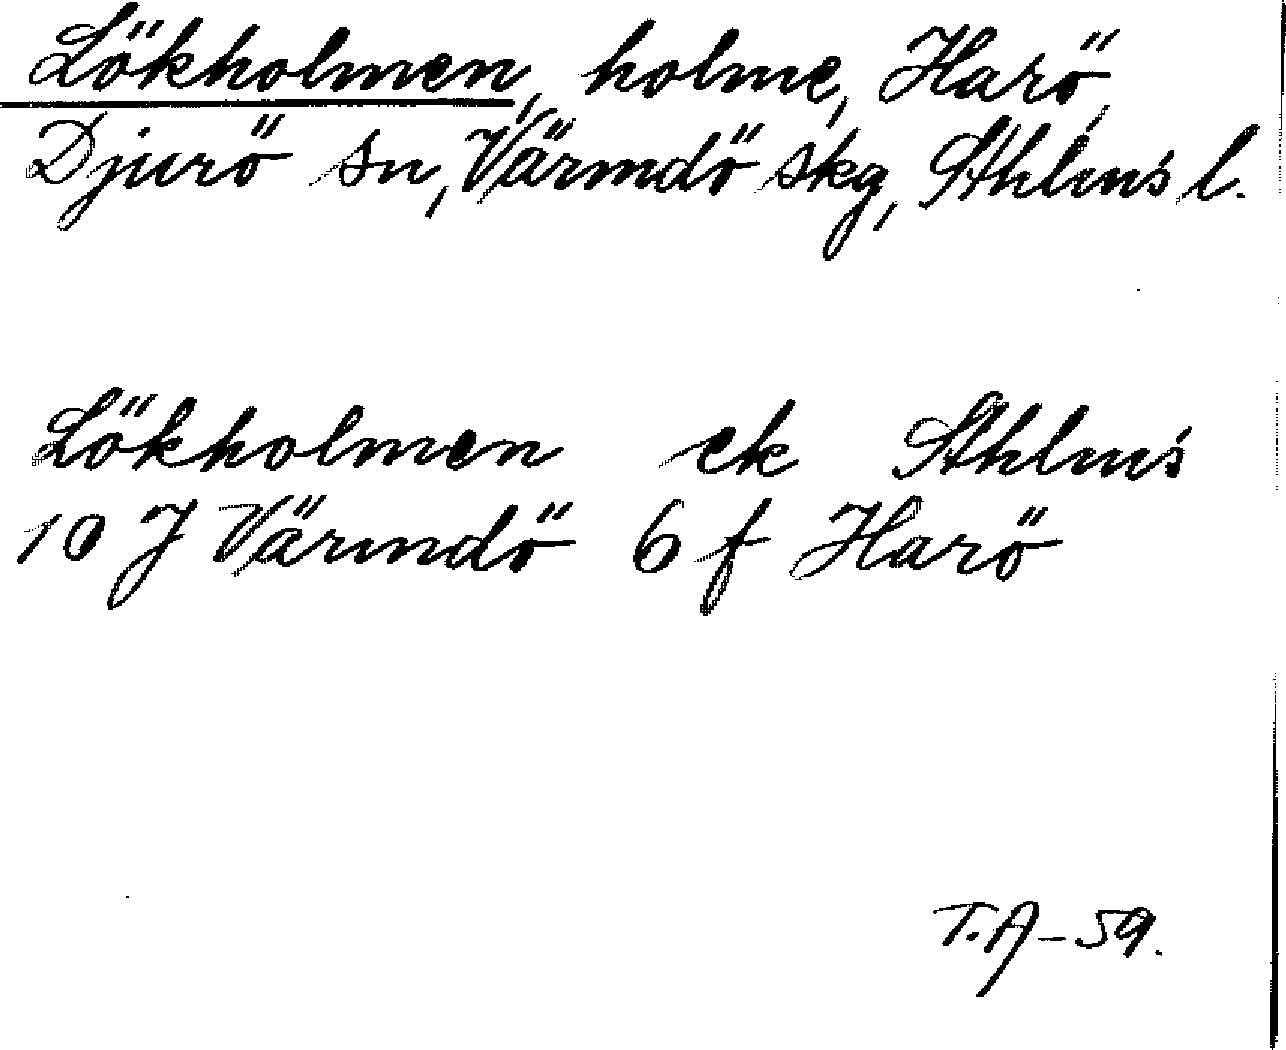 Lökholmen, holme, Harö,
Djurö sn, Värmdö skg, Sthlms l.
Lökholmen ek Sthlms
10 J Värmdö 6 f Harö
T.A-59.